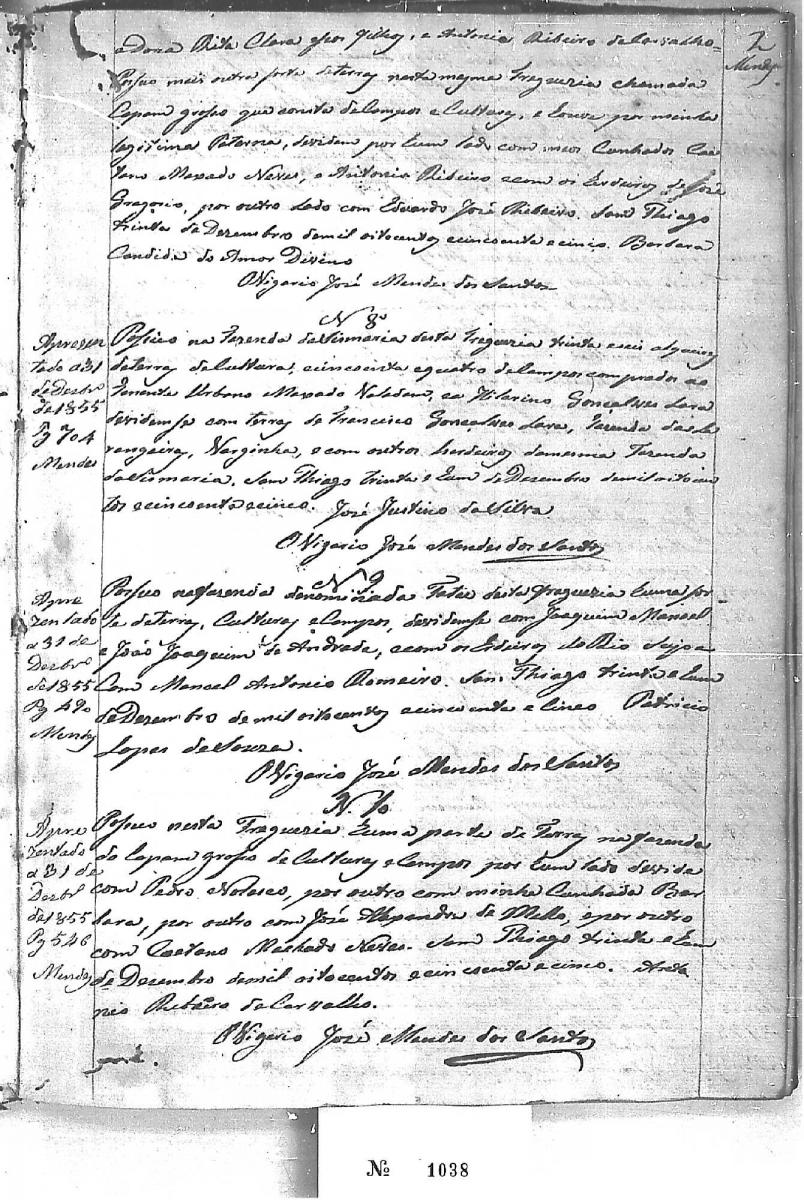 2
Mendes
e Dona Rita Clara e por filhos, e Antonio Ribeiro de Carvalho =
Possuo mais outra sorte de terras nesta mesma Fregueria chamada
Capam grosso que consta de Campos e Culturas, e houve por minha
legitima Paterna, devidem por hum lado com meos Cunhados Cae
tano Maxado Neves, e Antonio Ribeiro e com os Erdeiros de José
Gregorio, por outro lado com Eduardo José Ribeiro. Sam Thiago
trinta de Dezembro de mil oitocentos e cincoenta e cinco. Barbara
Candida do Amor Divino
O Vigario José Mendes dos Santos
N 8º
Aprezen
tado a 31
de Dezbrº
de 1855
Pg 704
Mendes
Possuo na Fazenda da Sismaria desta Fregueria trinta e seis alqueires
de terras de Cultura, e cincoenta e quatro de Campos comprados ao
Tenente Urbano Maxado e a Hilarino Gonçalves Lara
devidemse com terras de Francisco Gonçalves Lara, Fazenda das La
rangeiras, Varginha, e com outros herdeiros da mesma Fazenda
da Sismaria, Sam Thiago trinta e hum de Dezembro de mil oitocen
tos e cincoenta e cinco. José Justino da Silva
O Vigario José Mendes dos Santos
N 9
Apre
zentado
a 31 de
Dezbrº
de 1855
Pg 490
Mendes
Possuo na fazenda denominada desta Fregueria huma sor
te de terras, Culturas e Campos, devidemse com Joaquim Manoel
e João Joaquim de Andrade, e com os Erdeiros do Rio Sujo e
Com Manoel Antonio Romeiro. Sam Thiago trinta e hum
de Dezembro de mil oitocentos e cincoenta e cinco Patricio
Lopes de Souza.
O Vigario José Mendes dos Santos
N. 10
Apre
zentado
a 31 de
Dezbrº
de 1855
Pg 546
Mendes
Possuo nesta Fregueria huma parte de Terras na fazenda
do Capam grosso de Culturas e Campos por hum lado devide
com Pedro Nolasco, por outro com minha Cunhada Bar
bara, por outro com José Alexandre de Mello, e por outro
com Caetano Machado Neves. Sam Thiago trinta e hum
de Dezembro de mil oitocentos e cincoenta e cinco. Anto
nio Ribeiro de Carvalho.
O Vigario José Mendes dos Santos
Nº 1038